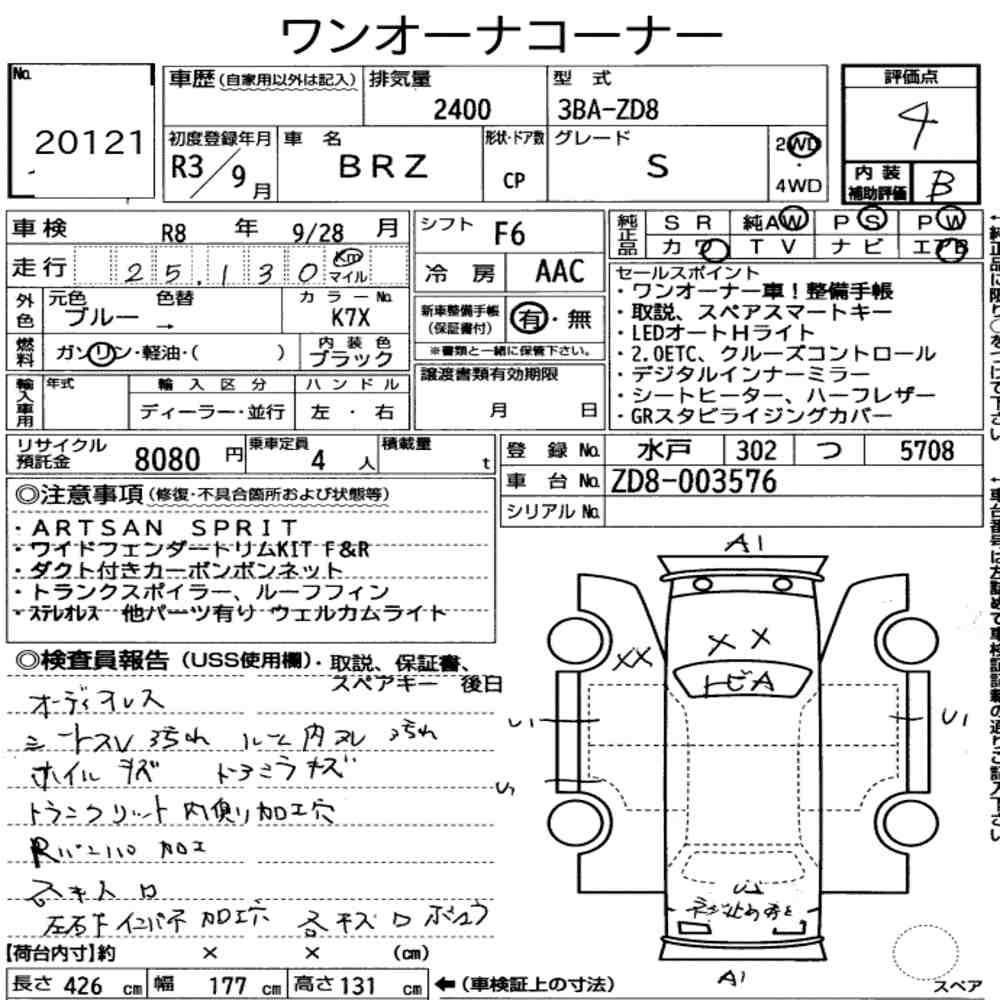 ワンオーナコーナー
No.
20121
車歴(自家用以外は記入)
排気量
2400
型 式
3BA-ZD8
評価点
4
初度登録年月
R3/9月
車 名
BRZ
形状・ドア数
CP
グレード
S
2WD
・
4WD
内 装
補助評価
B
車検 R8 年 9/28 月
シフト F6
純正品
SR 純AW PS PW
カワ TV ナビ エアB
走行 25,130 Km マイル
冷 房 AAC
外色
元色 色替
ブルー →
カラーNo.
K7X
新車整備手帳
(保証書付)
有・無
※書類と一緒に保管下さい。
セールスポイント
・ワンオーナー車!整備手帳
・取説、スペアスマートキー
・LEDオートHライト
・2.0ETC、クルーズコントロール
・デジタルインナーミラー
・シートヒーター、ハーフレザー
・GRスタビライジングカバー
燃料
ガソリン・軽油・( )
内 装 色
ブラック
譲渡書類有効期限
月 日
輸入車用
年式
輸 入 区 分
ディーラー・並行
ハ ン ド ル
左 ・ 右
リサイクル
預託金
8080 円
乗車定員
4 人
積載量
t
登 録 No. 水戸 302 つ 5708
車 台 No. ZD8-003576
シリアルNo.
◎注意事項(修復・不具合箇所および状態等)
・ARTSAN SPRIT
・ワイドフェンダートリムKIT F&R
・ダクト付きカーボンボンネット
・トランクスポイラー、ルーフフィン
・ステレオレス 他パーツ有り ウェルカムライト
◎検査員報告(USS使用欄)・取説、保証書、
スペアキー 後日
オーディオレス
シートスレ汚れ ルーム内スレ 汚れ
ホイルキズ ドアミラキズ
トランクリット内側リ加工穴
Rバンパ加工
左右下インパネ加工穴
A1
XX
X X
トビA
U1
U1
U1
U1
A1
スペア
【荷台内寸】約 × × (cm)
長さ 426 cm 幅 177 cm 高さ 131 cm ←(車検証上の寸法)
←純正品に限り○をつけて下さい
←車台番号は左詰めで車検証記載の通りご記入下さい